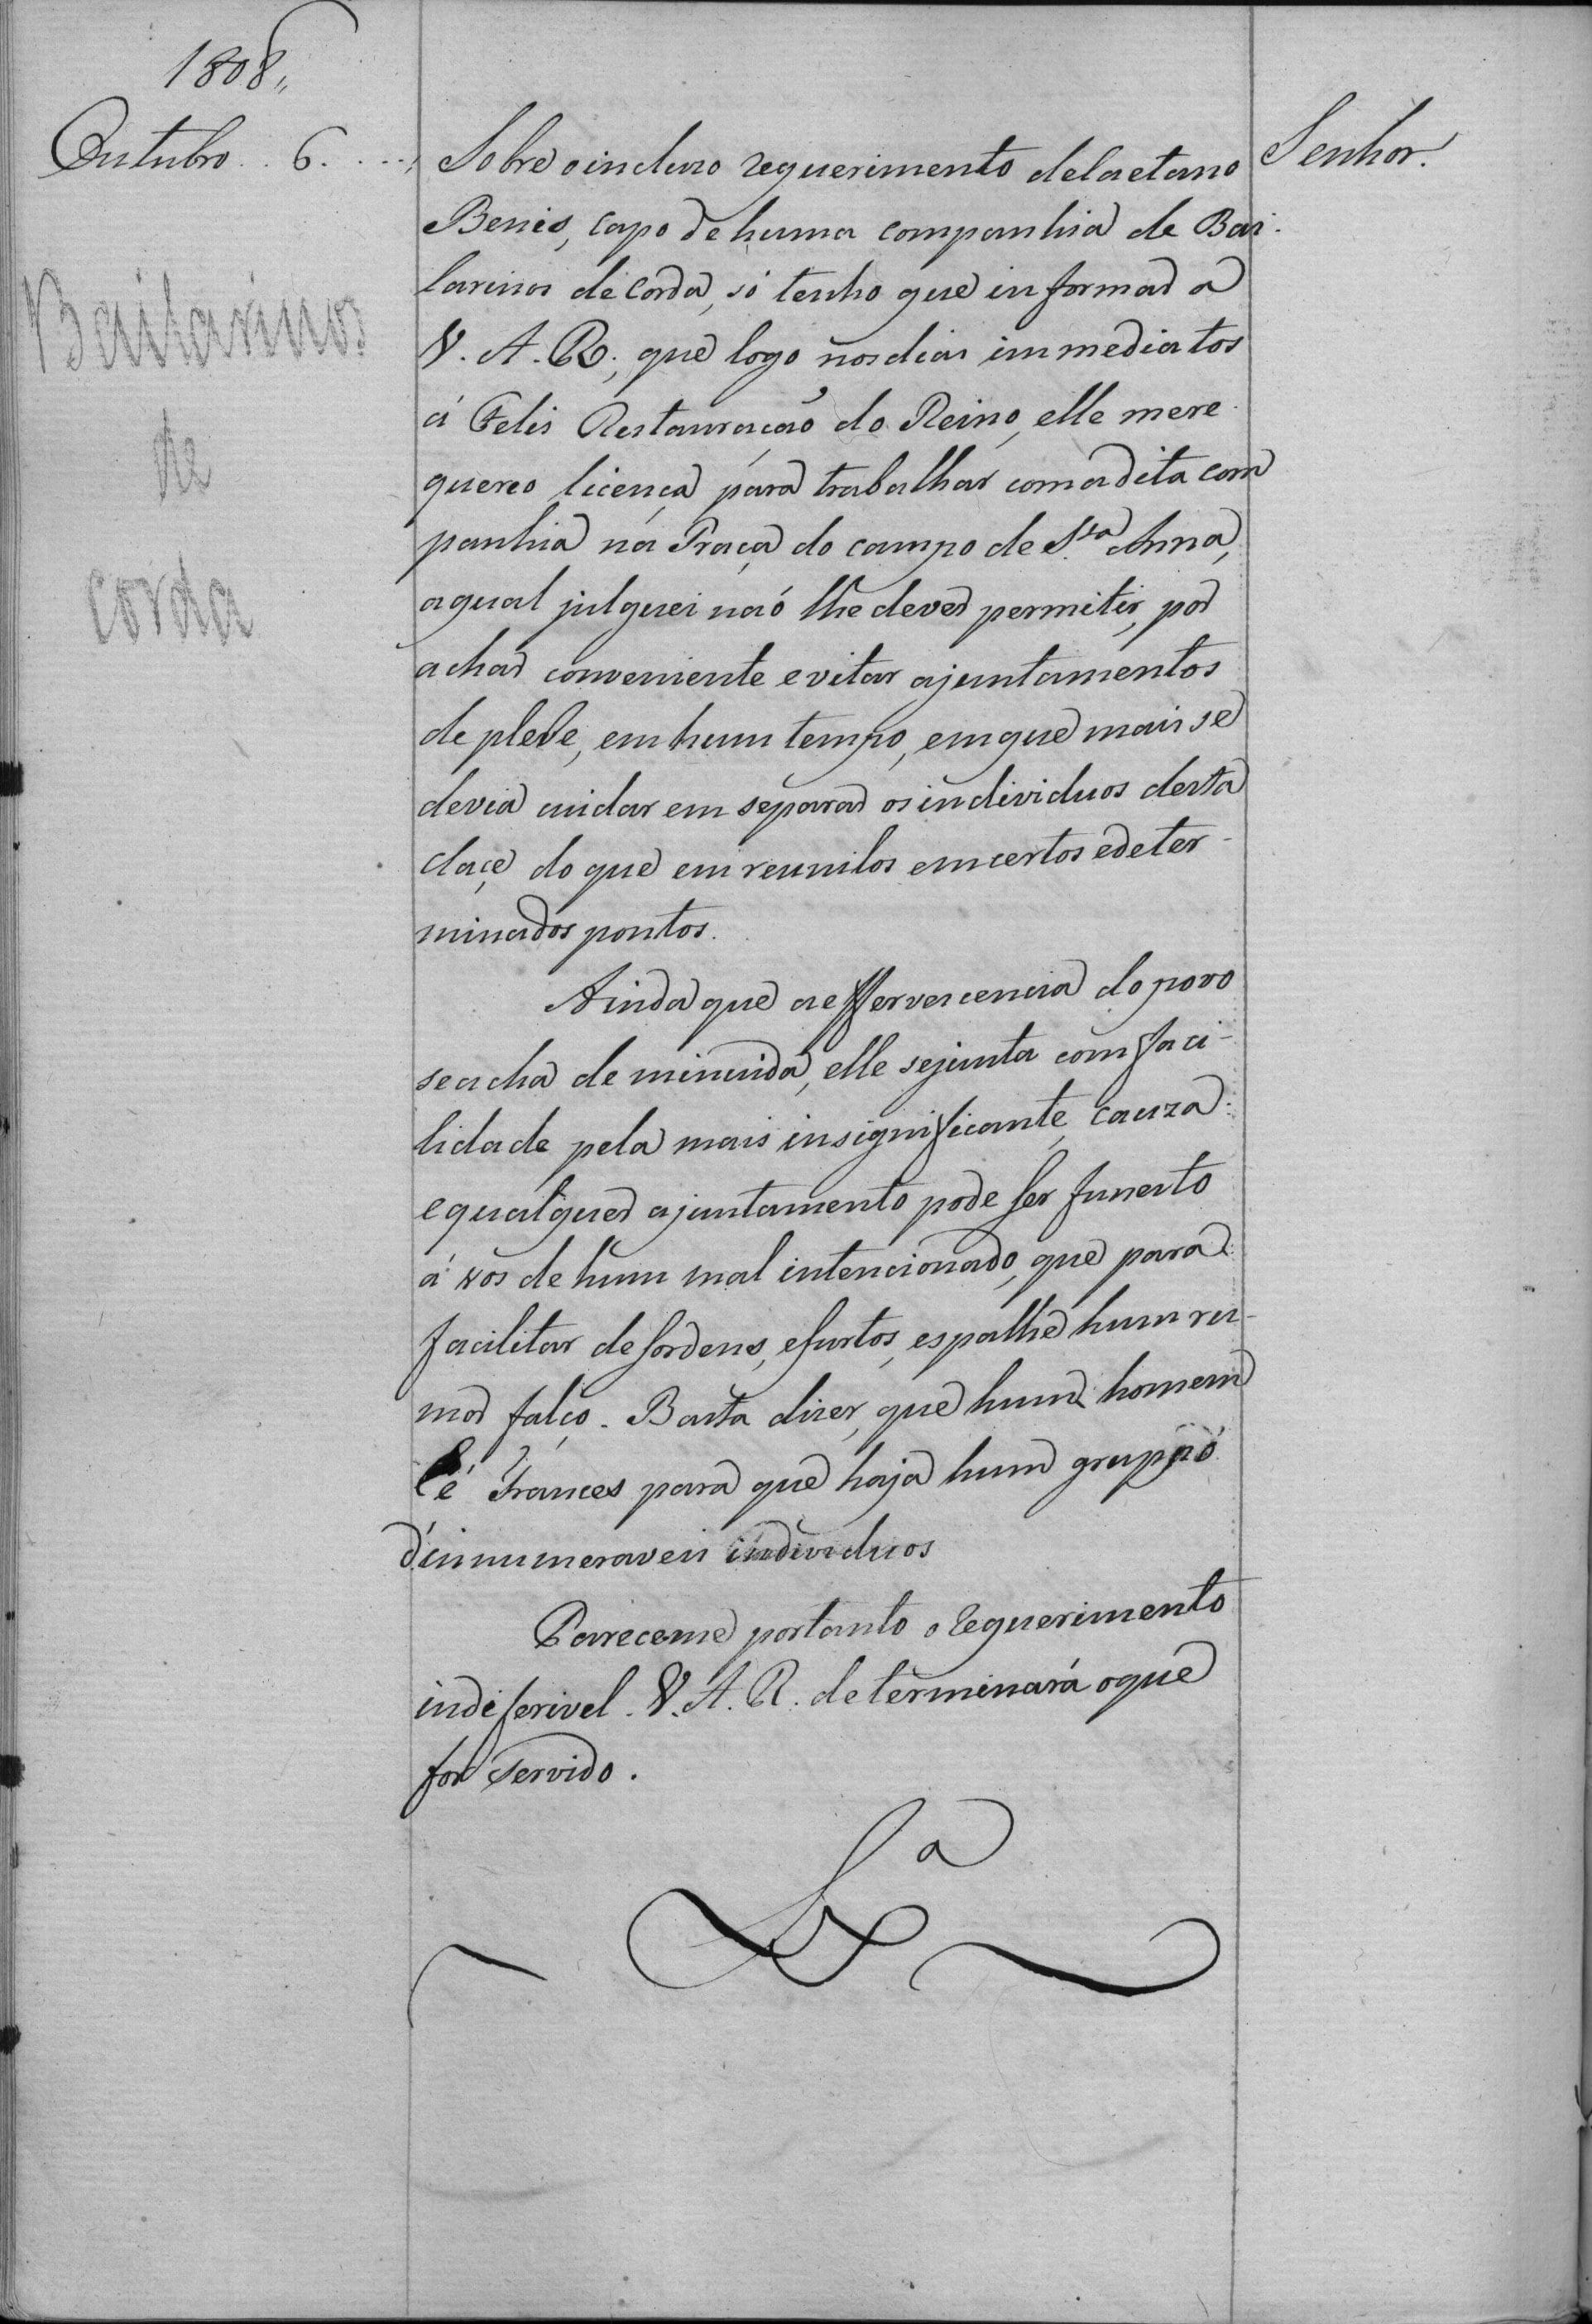 1808,,
Outubro.. 6. ...
Senhor.
Bailarinos
de
corda
Sobre o incluzo requerimento de Caetano
Benis, capo de huma companhia de Bai-
larinos de corda, só tenho que informar a
V. A. R., que logo nos dias immediatos
á Felis Restauração do Reino, elle me re-
quereo licença para trabalhar com a dita com
panhia na Praça do campo de Sta Anna,
a qual julguei naó lhe dever permitir, por
achar conveniente evitar ajuntamentos
de plebe, em hum tempo, em que mais se
devia cuidar em separar os individuos desta
claçe do que em reunilos em certos e deter-
minados pontos.
Ainda que a effervescencia do povo
se acha deminuida, elle se junta com faci-
lidade pela mais insignificante cauza:
e qualquer ajuntamento pode ser funesto
á vos de hum mal intencionado, que para
facilitar desordens, e furtos, espalhe hum ru-
mor falço. Basta dizer, que hum homem
é Frances para que haja hum gruppo
d'innumeraveis individuos
Pareceme portanto o Requerimento
indiferivel. V. A. R. determinará o que
for servido.
La